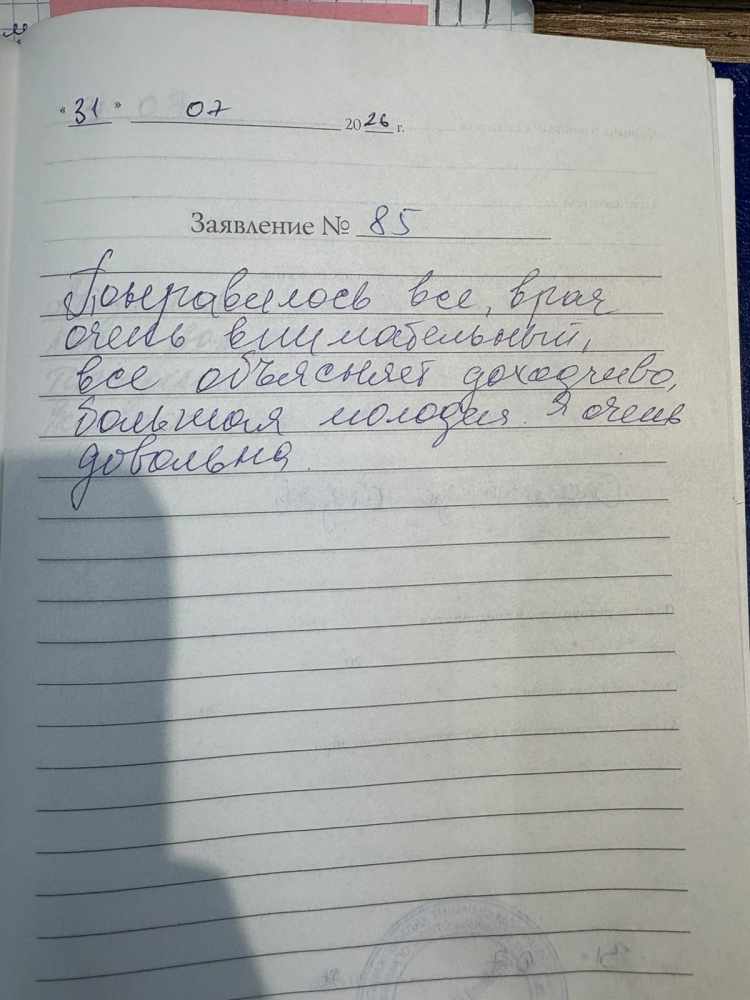 "31" 07 2026 г.
Заявление № 85
Понравилось все, врач
очень внимательный,
все объясняет доходчиво,
большая молодец. Я очень
довольна.